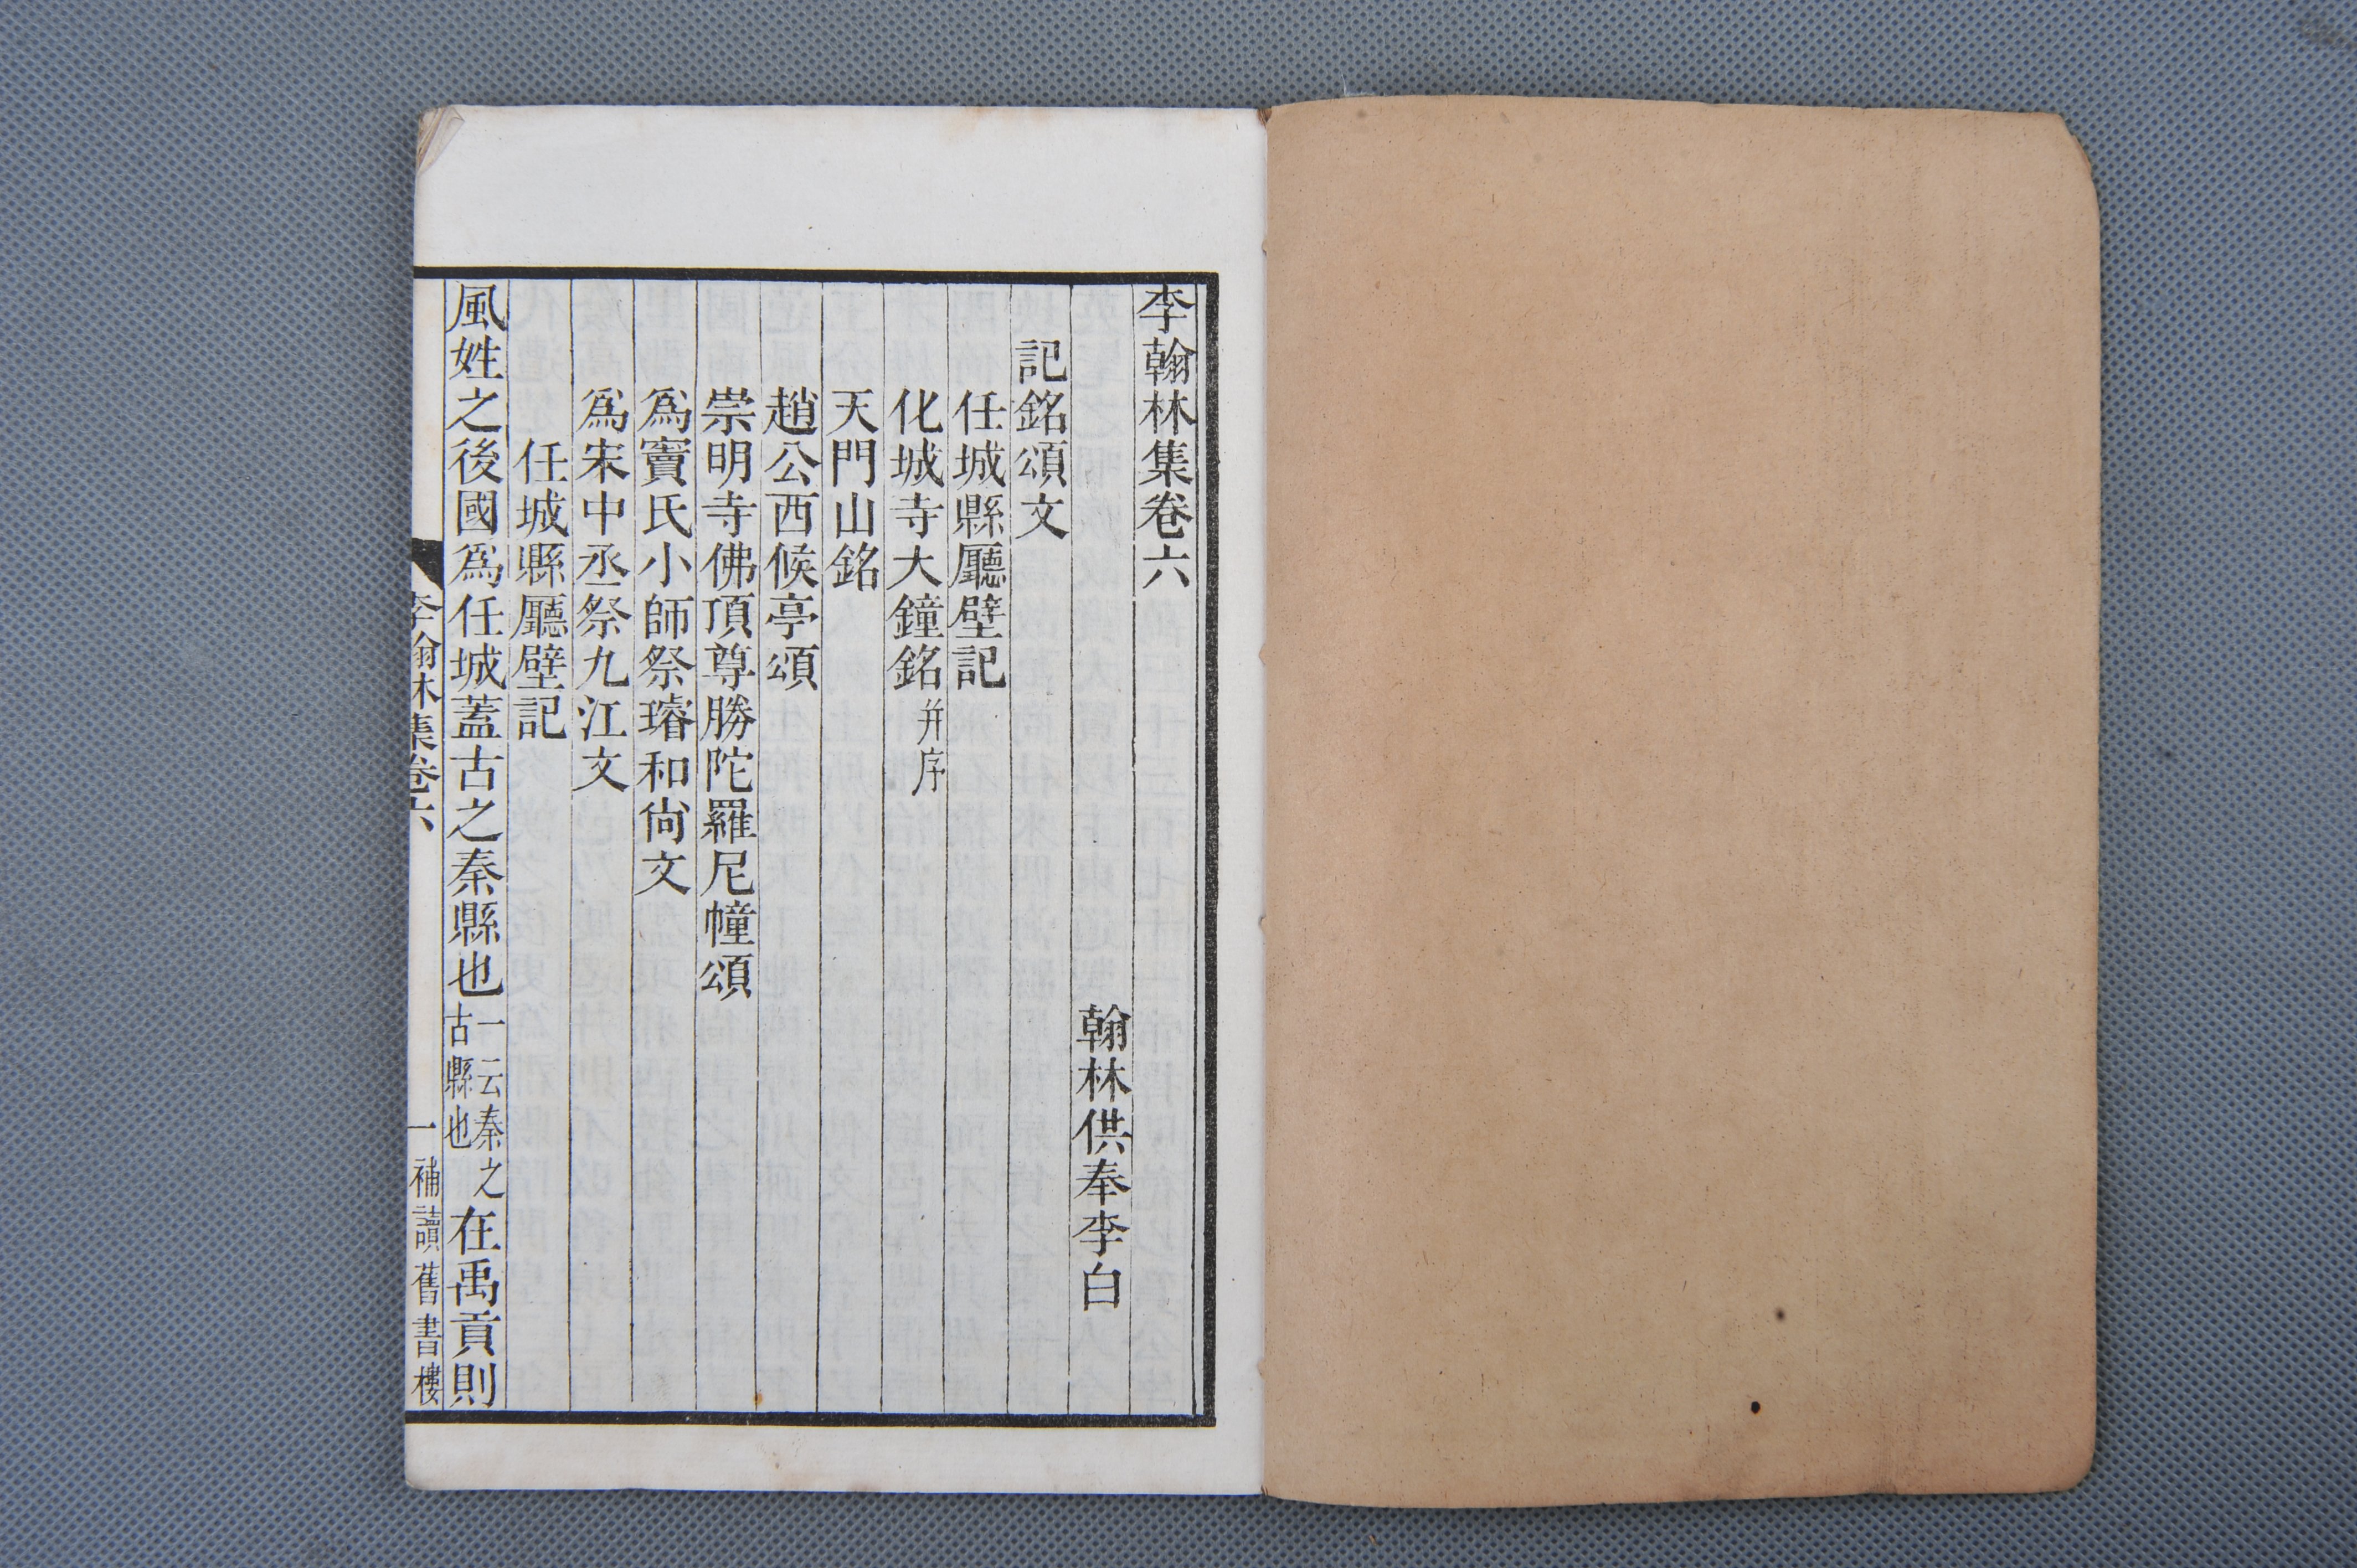 李翰林集卷六
翰林供奉李白
記銘頌文
任城縣廳壁記
化城寺大鐘銘并序
天門山銘
趙公西候亭頌
崇明寺佛頂尊勝陀羅尼幢頌
爲竇氏小師祭璿和尙文
爲宋中丞祭九江文
任城縣廳壁記
風姓之後國爲任城蓋古之秦縣也一云秦之古縣也在禹貢則
李翰林集卷六
一
補讀舊書樓